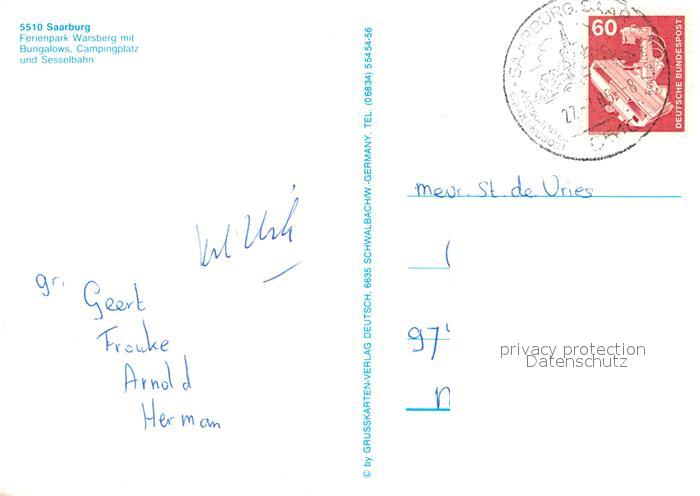 5510 Saarburg
Ferienpark Warsberg mit
Bungalows, Campingplatz
und Sesselbahn
gr.
Geert
Frouke
Arnold
Herman
© by GRUSSKARTEN-VERLAG DEUTSCH, 6635 SCHWALBACH/W.-GERMANY, TEL. (06834) 55454-56
SAARBURG, SAAR
5510
60
DEUTSCHE BUNDESPOST
mevr. St. de Vries
97
privacy protection
Datenschutz